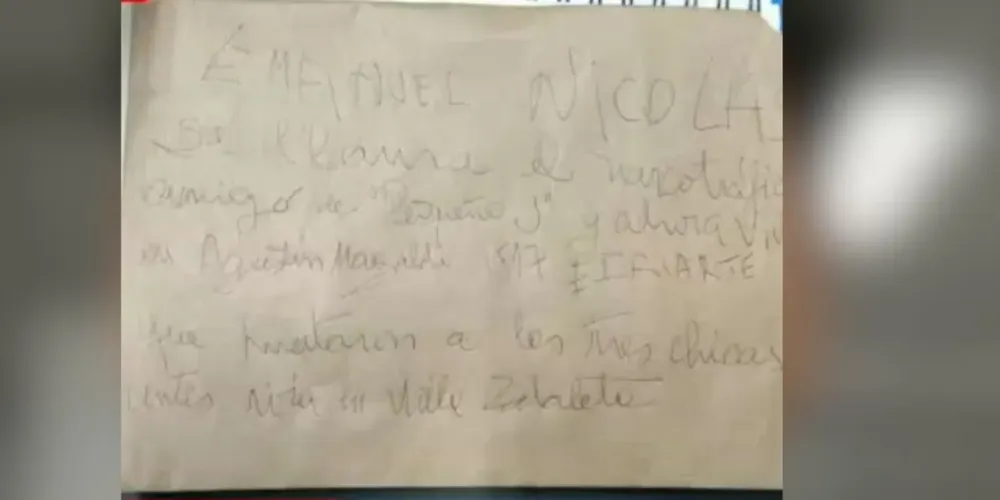 EMANUEL NICOLAS
Se llama el narcotráfic
amigo de "pequeño J" y ahora viv
en Agustín Magaldi 517 E IRIARTE
que mataron a las tres chicas
antes vivía en Villa Zabaleta